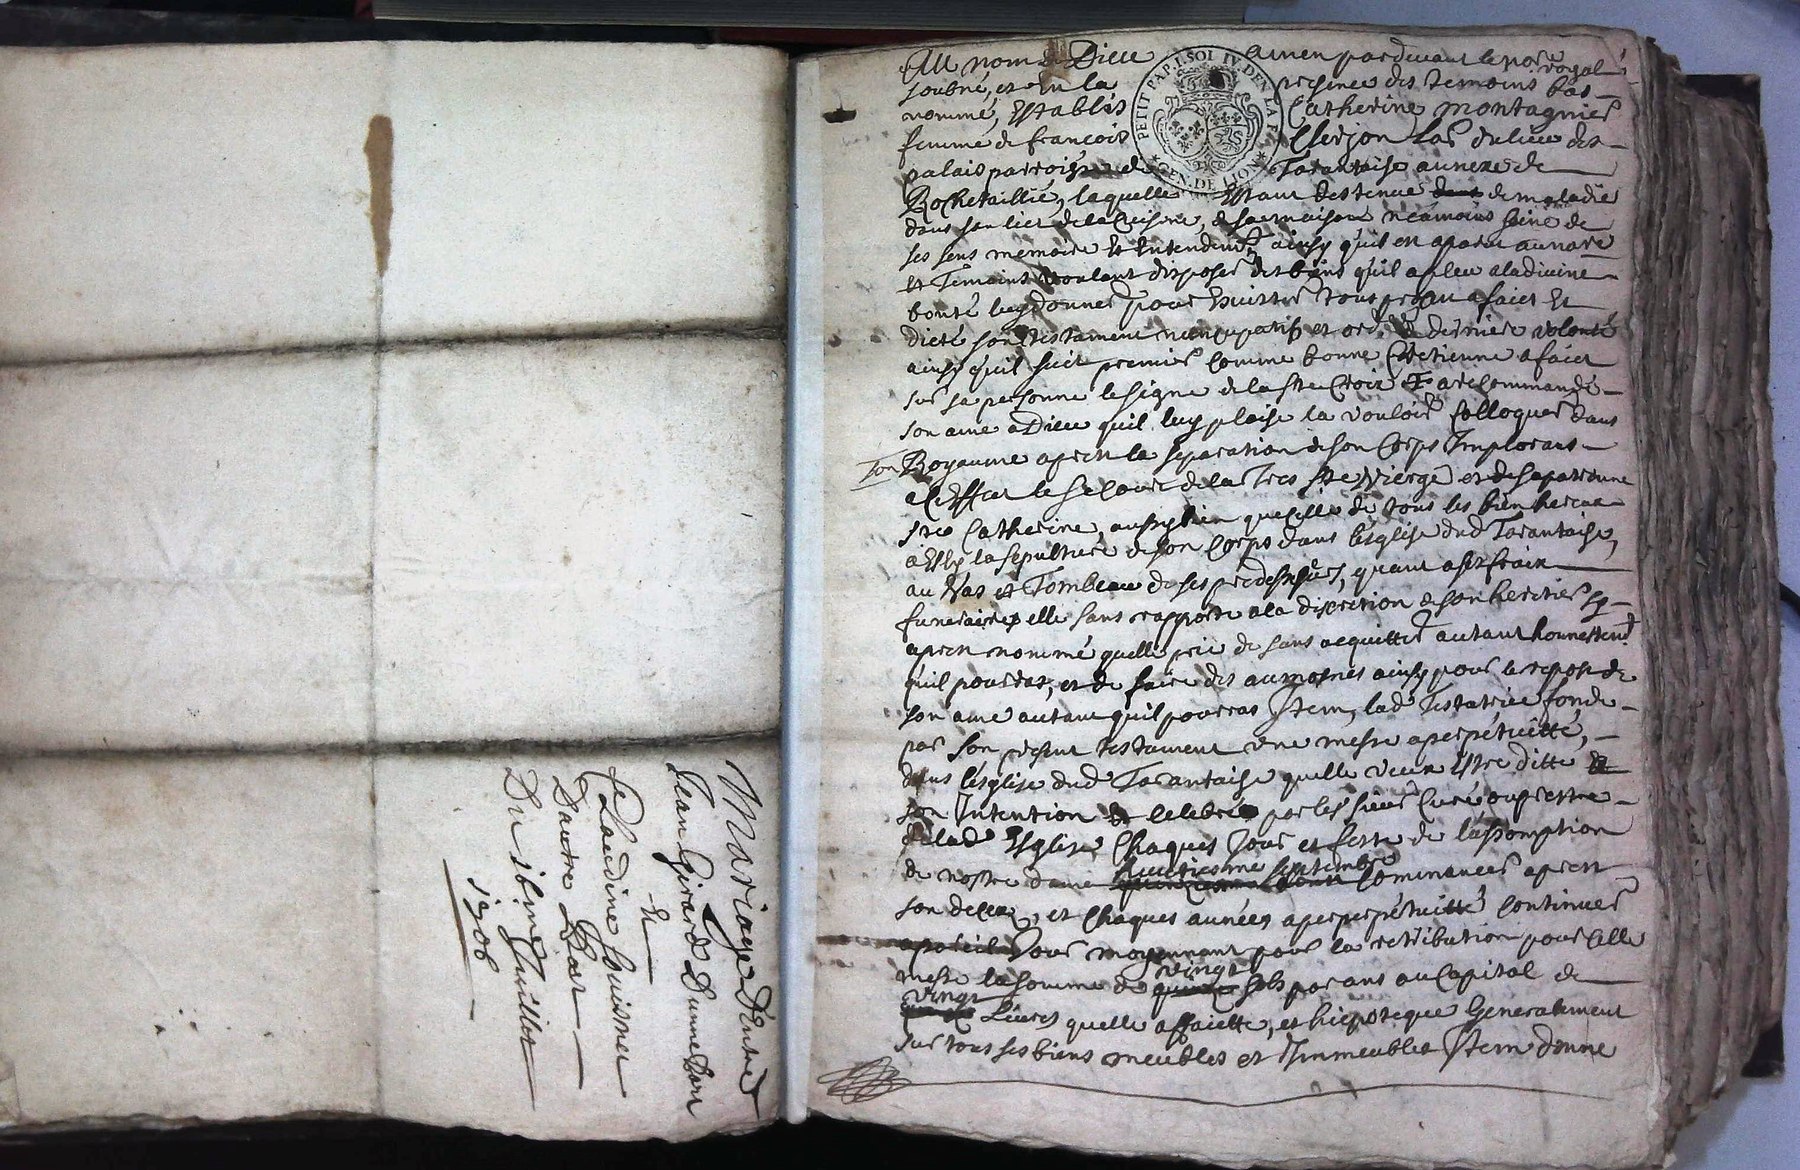 Mariage D'Entre
Jean Girard D'une part
Et
Claudine Cuisner
Dautre Part
Du 16me Juillet
1708
Au nom de Dieu Amen pardevant le nore royal
soubné, et en la presence des temoins bas
nommé, Establis Catherine Montagnier
femme de francois Clerjon labr du lieu des
palais parroisse de Tarantaise annexe de
Rochetaillié, laquelle Estant destenue de maladie
dans son lict de la Cuisine, de sa maison neamoins saine de
ses sens memoire Et Entendemt, ainsy quil est aparu au nore
Et Temoins Voulant disposer des biens quil a pleu a la divine
bonté luy donner pour
dicté son testament nuncupatif et ordre de derniere volonté
ainsy quil suit premier comme bonne Chretienne a faict
sur sa personne le signe de la Ste Croix + a recommandé
son ame a Dieu quil luy plaise la vouloir Colloquer dans
son Royaume apres la separation de son Corps Implorant
a cest Effect le secours de la Tres Ste Vierge et de sa patronne
Ste Catherine aussy bien que celle de tous les bienheureux
a Esly la sepulture de son Corps dans lesglise dud Tarantaise,
au Vas et Tombeau de ses predesseurs, quant a ses fraix
funeraires elle sans rapporte a la discretion de son heritier cy
apres nommé quelle prie de sans acquitter autant honnestemt
quil pourras, et de faire des aumosnes ainsy pour le repos de
son ame autant quil pourras Item, lad Testatrice fonde
par son present testament une messe a perpétuitté,
dans lésglise dud Tarantaise quelle veux Estre ditte a
son Intention et celebrée par les sieurs Curé ou prestre
de lad Esglise Chaques Jour et feste de l'assomption
huictiesme septembre
de nostre dame commancer apres
son deces, et Chaques années a perpetuitté continuer
a pareil Jour moyennant pour la retribution pour celle
vingt
messe la somme de quinze sols par ans au Capital de
vingt
Livres quelle assiette, et hipoteque Generalement
sur tous ses biens meubles et Immeubles Item donne
PETIT PAP. 1. SOL IV. DEN LA F.
GEN. DE LION